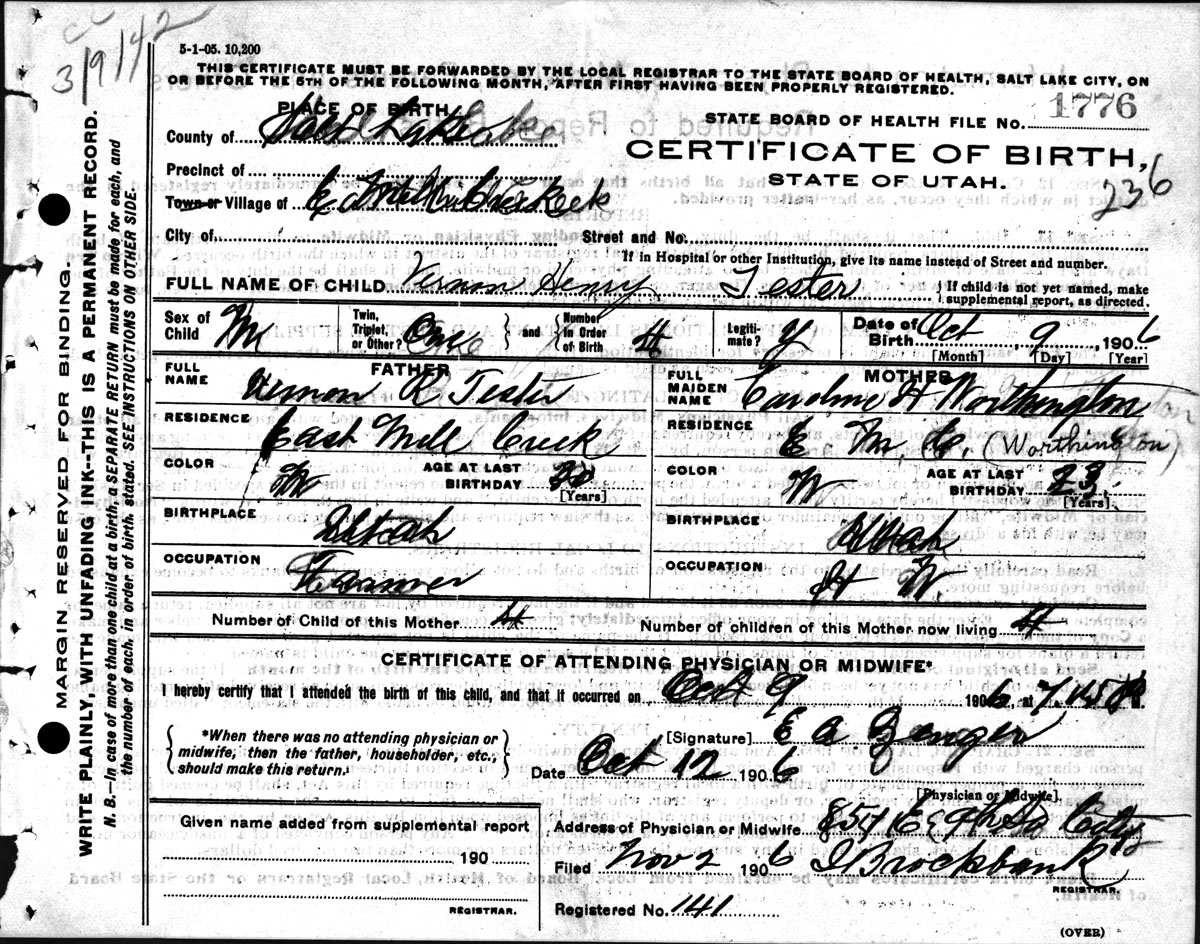 CC
3/9/42
5-1-05. 10,200
THIS CERTIFICATE MUST BE FORWARDED BY THE LOCAL REGISTRAR TO THE STATE BOARD OF HEALTH, SALT LAKE CITY, ON
OR BEFORE THE 5TH OF THE FOLLOWING MONTH, AFTER FIRST HAVING BEEN PROPERLY REGISTERED.
PLACE OF BIRTH
County of Salt Lake
STATE BOARD OF HEALTH FILE No. 1776
CERTIFICATE OF BIRTH,
STATE OF UTAH.
236
Precinct of
Town or Village of East Mill Creek
City of
Street and No.
If in Hospital or other Institution, give its name instead of Street and number.
FULL NAME OF CHILD Vernon Henry Tester { If child is not yet named, make supplemental report, as directed.
Sex of Child M
Twin, Triplet, or Other? One } and { Number in Order of Birth 4
Legiti- mate? y
Date of Birth Oct 9 1906
[Month] [Day] [Year]
FATHER
FULL NAME Vernon R Tester
RESIDENCE East Mill Creek
COLOR W
AGE AT LAST BIRTHDAY
[Years]
BIRTHPLACE Utah
OCCUPATION Farmer
MOTHER
FULL MAIDEN NAME Caroline H Worthington
RESIDENCE E. M. C. (Worthington)
COLOR W
AGE AT LAST BIRTHDAY 23
[Years]
BIRTHPLACE Utah
OCCUPATION H W
Number of Child of this Mother 4
Number of children of this Mother now living 4
CERTIFICATE OF ATTENDING PHYSICIAN OR MIDWIFE*
I hereby certify that I attended the birth of this child, and that it occurred on Oct 9 1906, at 7.45 P M.
{ *When there was no attending physician or
midwife, then the father, householder, etc.,
should make this return. }
[Signature] E A Zenger
Date Oct 12 1906
[Physician or Midwife].
Given name added from supplemental report
190
REGISTRAR.
Address of Physician or Midwife 857 E 4th So City
Filed Nov 2 1906 I Brockbank
REGISTRAR.
Registered No. 141
(OVER)
MARGIN RESERVED FOR BINDING.
WRITE PLAINLY, WITH UNFADING INK--THIS IS A PERMANENT RECORD.
N. B.—In case of more than one child at a birth, a SEPARATE RETURN must be made for each, and
the number of each, in order of birth, stated. SEE INSTRUCTIONS ON OTHER SIDE.